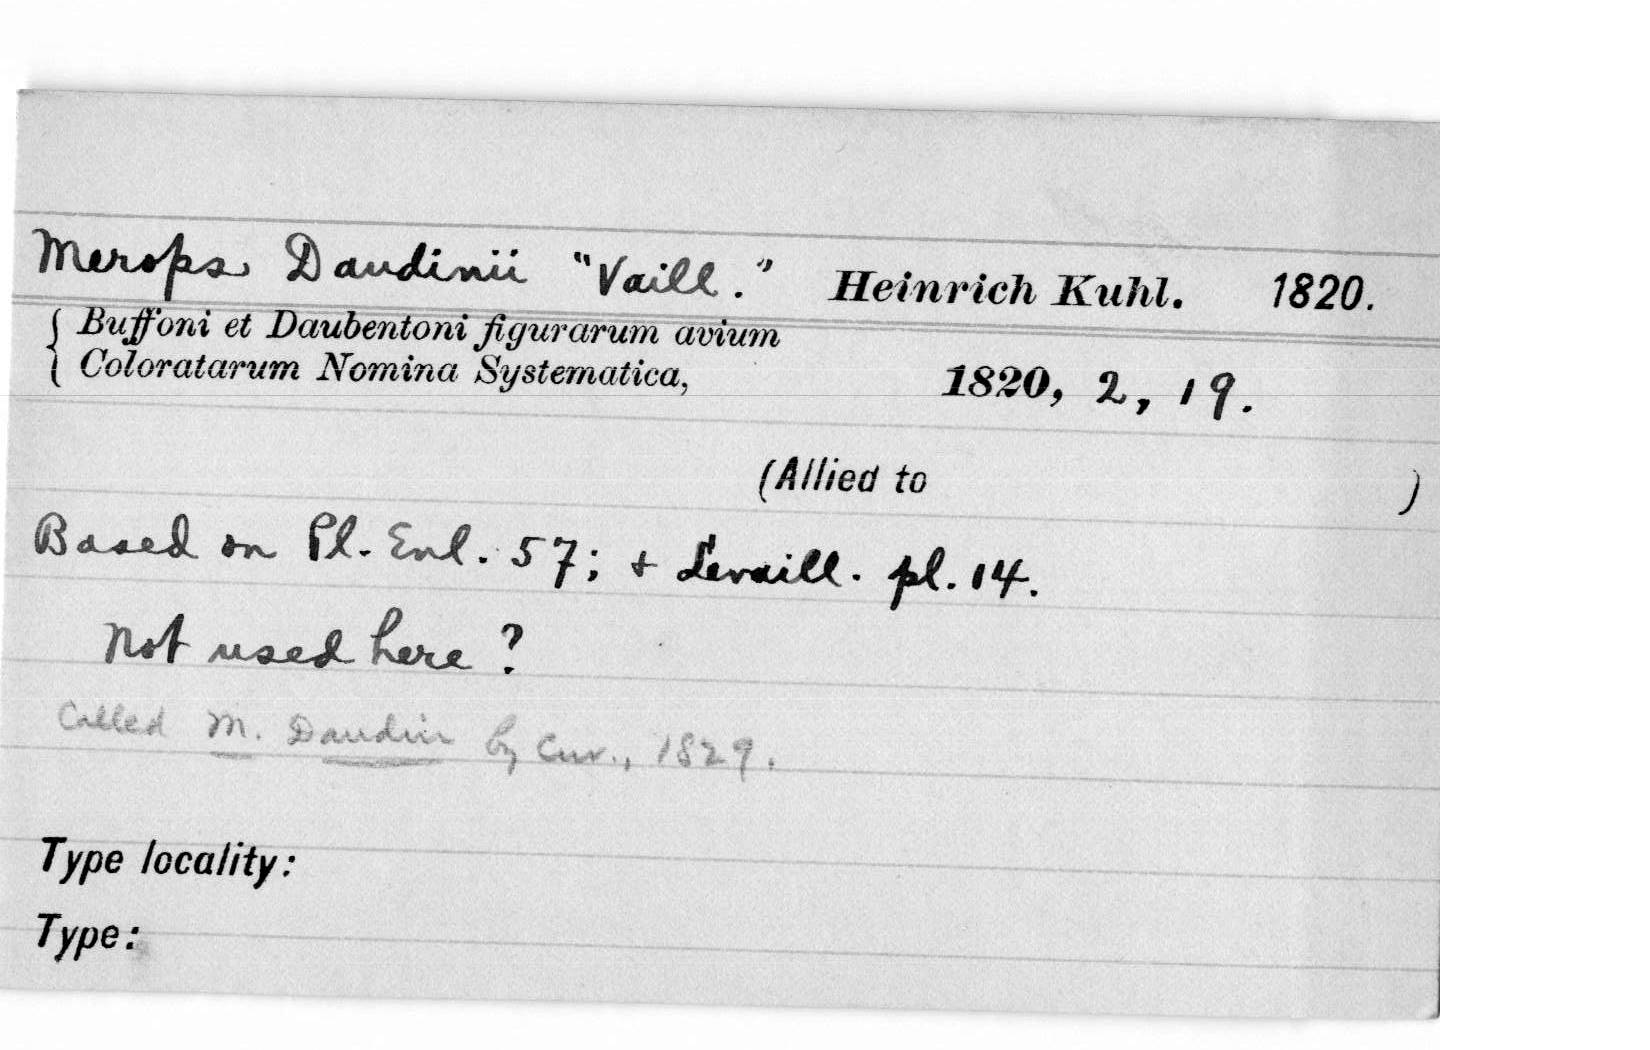 Merops Daudinii "Vaill." Heinrich Kuhl. 1820.
{ Buffoni et Daubentoni figurarum avium
Coloratarum Nomina Systematica, 1820, 2, 19.
(Allied to )
Based on Pl. Enl. 57; + Levaill. pl. 14.
Not used here?
Called M. Daudin by Cuv., 1829.
Type locality:
Type: